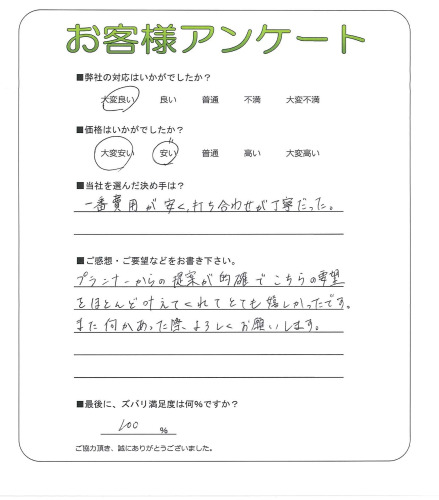 お客様アンケート
■弊社の対応はいかがでしたか？
大変良い 良い 普通 不満 大変不満
■価格はいかがでしたか？
大変安い 安い 普通 高い 大変高い
■当社を選んだ決め手は？
一番費用が安く、打ち合わせが丁寧だった。
■ご感想・ご要望などをお書き下さい。
プランナーからの提案が的確でこちらの要望
をほとんど叶えてくれてとても嬉しかったです。
また何かあった際、よろしくお願いします。
■最後に、ズバリ満足度は何％ですか？
100 ％
ご協力頂き、誠にありがとうございました。